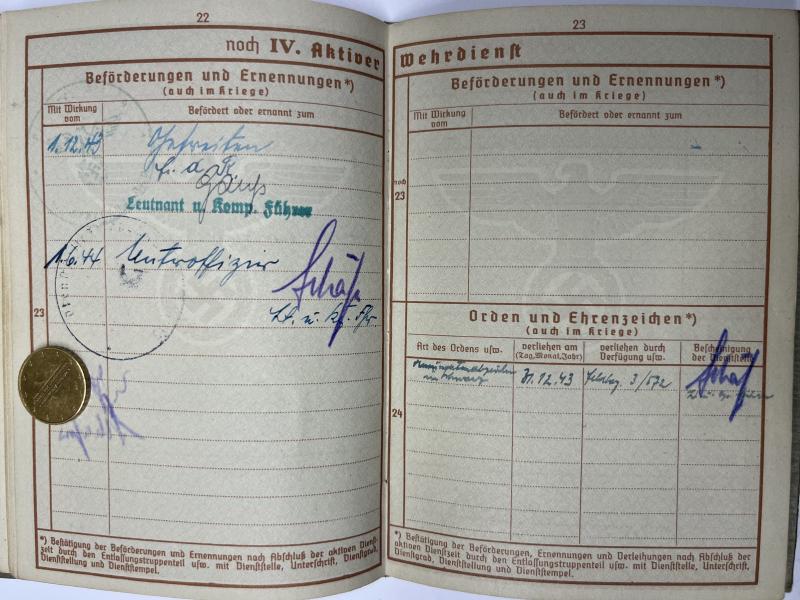 22
noch IV. Aktiver
Beförderungen und Ernennungen*)
(auch im Kriege)
Mit Wirkung vom
Befördert oder ernannt zum
1.12.43 Gefreiten
Leutnant u. Komp. Führer
1.6.44 Unteroffizier
Schäf
Lt. u. Kp. Fhr.
23
*) Bestätigung der Beförderungen und Ernennungen nach Abschluß der aktiven Dienst-
zeit durch den Entlassungstruppenteil usw. mit Dienststelle, Unterschrift, Dienstgrad,
Dienststellung und Dienststempel.
23
Wehrdienst
Beförderungen und Ernennungen*)
(auch im Kriege)
Mit Wirkung vom
Befördert oder ernannt zum
noch
23
Orden und Ehrenzeichen*)
(auch im Kriege)
Art des Ordens usw.
verliehen am
(Tag, Monat, Jahr)
verliehen durch
Verfügung usw.
Bescheinigung
der Dienststelle
in schwarz
31.12.43
3/572
Schäf
24
*) Bestätigung der Beförderungen, Ernennungen und Verleihungen nach Abschluß der
aktiven Dienstzeit durch den Entlassungstruppenteil usw. mit Dienststelle, Unterschrift,
Dienstgrad, Dienststellung und Dienststempel.